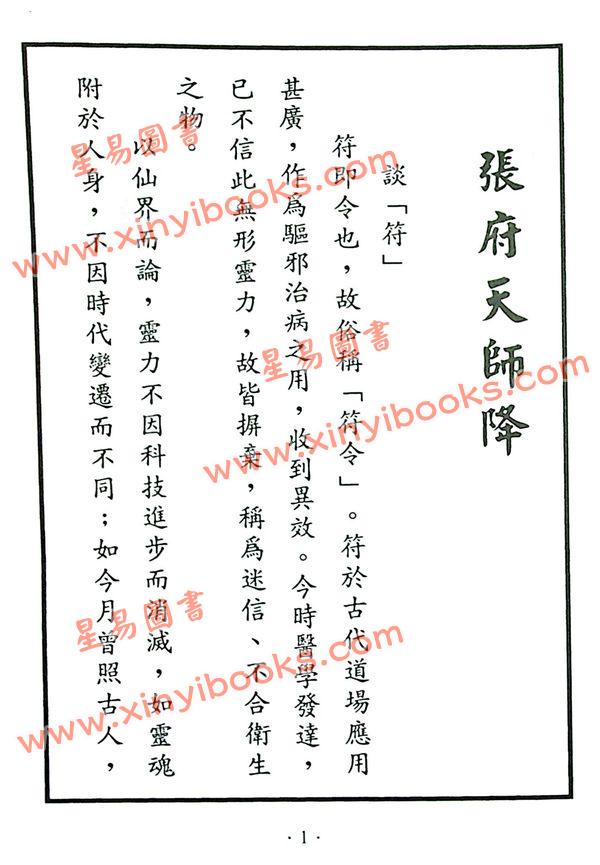 張府天師降
談「符」
符即令也，故俗稱「符令」。符於古代道場應用
甚廣，作為驅邪治病之用，收到異效。今時醫學發達，
已不信此無形靈力，故皆摒棄，稱為迷信、不合衛生
之物。
以仙界而論，靈力不因科技進步而消滅，如靈魂
附於人身，不因時代變遷而不同；如今月曾照古人，
星易圖書
www.xinyibooks.com
星易圖書
www.xinyibooks.com
星易圖書
www.xinyibooks.com
·1·